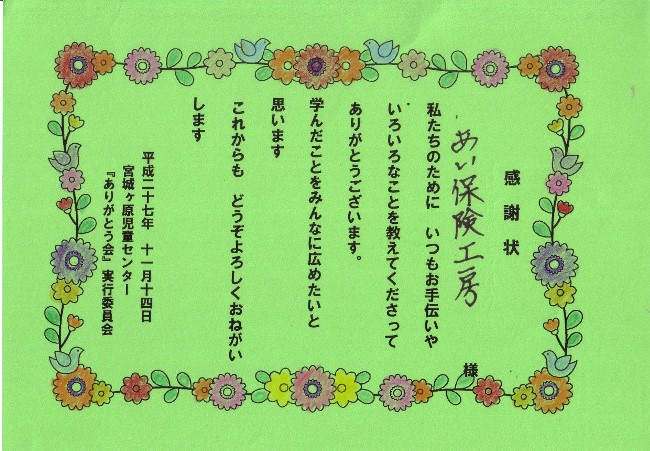 感謝状
あい保険工房
様
私たちのために いつもお手伝いや
いろいろなことを教えてくださって
ありがとうございます。
学んだことをみんなに広めたいと
思います
これからも どうぞよろしくおねがい
します
平成二十七年 十一月十四日
宮城ヶ原児童センター
『ありがとう会』実行委員会